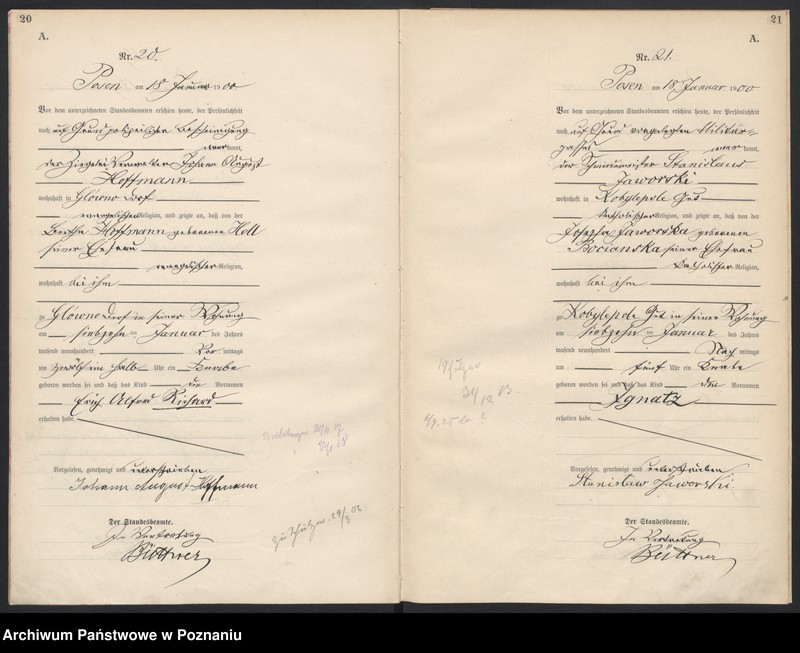 20
A.
Nr. 20.
Posen am 18 Januar 1900
Vor dem unterzeichneten Standesbeamten erschien heute, der Persönlichkeit
nach auf Grund polizeilicher Bescheinigung
kannt,
der Ziegelei Verwalter Johann August
Hoffmann
wohnhaft in Glowno Dorf
evangelischer Religion, und zeigte an, daß von der
Bertha Hoffmann geborenen Holl
seiner Ehefrau
evangelischer Religion,
wohnhaft bei ihm
zu Glowno Dorf in seiner Wohnung
am siebzehn ten Januar des Jahres
tausend neunhundert Vor mittags
um zwölf ein halb Uhr ein Knabe
geboren worden sei und daß das Kind den Vornamen
Erich Alfred Richard
erhalten habe.
Vorgelesen, genehmigt und unterschrieben
Johann August Hoffmann
Der Standesbeamte.
In Vertretung
Büttner
21
A.
Nr. 21.
Posen am 18 Januar 1900
Vor dem unterzeichneten Standesbeamten erschien heute, der Persönlichkeit
nach auf Grund vorgelegten Militär-
passes kannt,
der Schmiedemeister Stanislaus
Jaworski
wohnhaft in Kobylepole Gut
katholischer Religion, und zeigte an, daß von der
Josepha Jaworska geborenen
Bocianska seiner Ehefrau
katholischer Religion,
wohnhaft bei ihm
zu Kobylepole Gut in seiner Wohnung
am siebzehn ten Januar des Jahres
tausend neunhundert Nach mittags
um fünf Uhr ein Knabe
geboren worden sei und daß das Kind den Vornamen
Ignatz
erhalten habe.
Vorgelesen, genehmigt und unterschrieben
Stanisław Jaworski.
Der Standesbeamte.
In Vertretung
Büttner
Archiwum Państwowe w Poznaniu